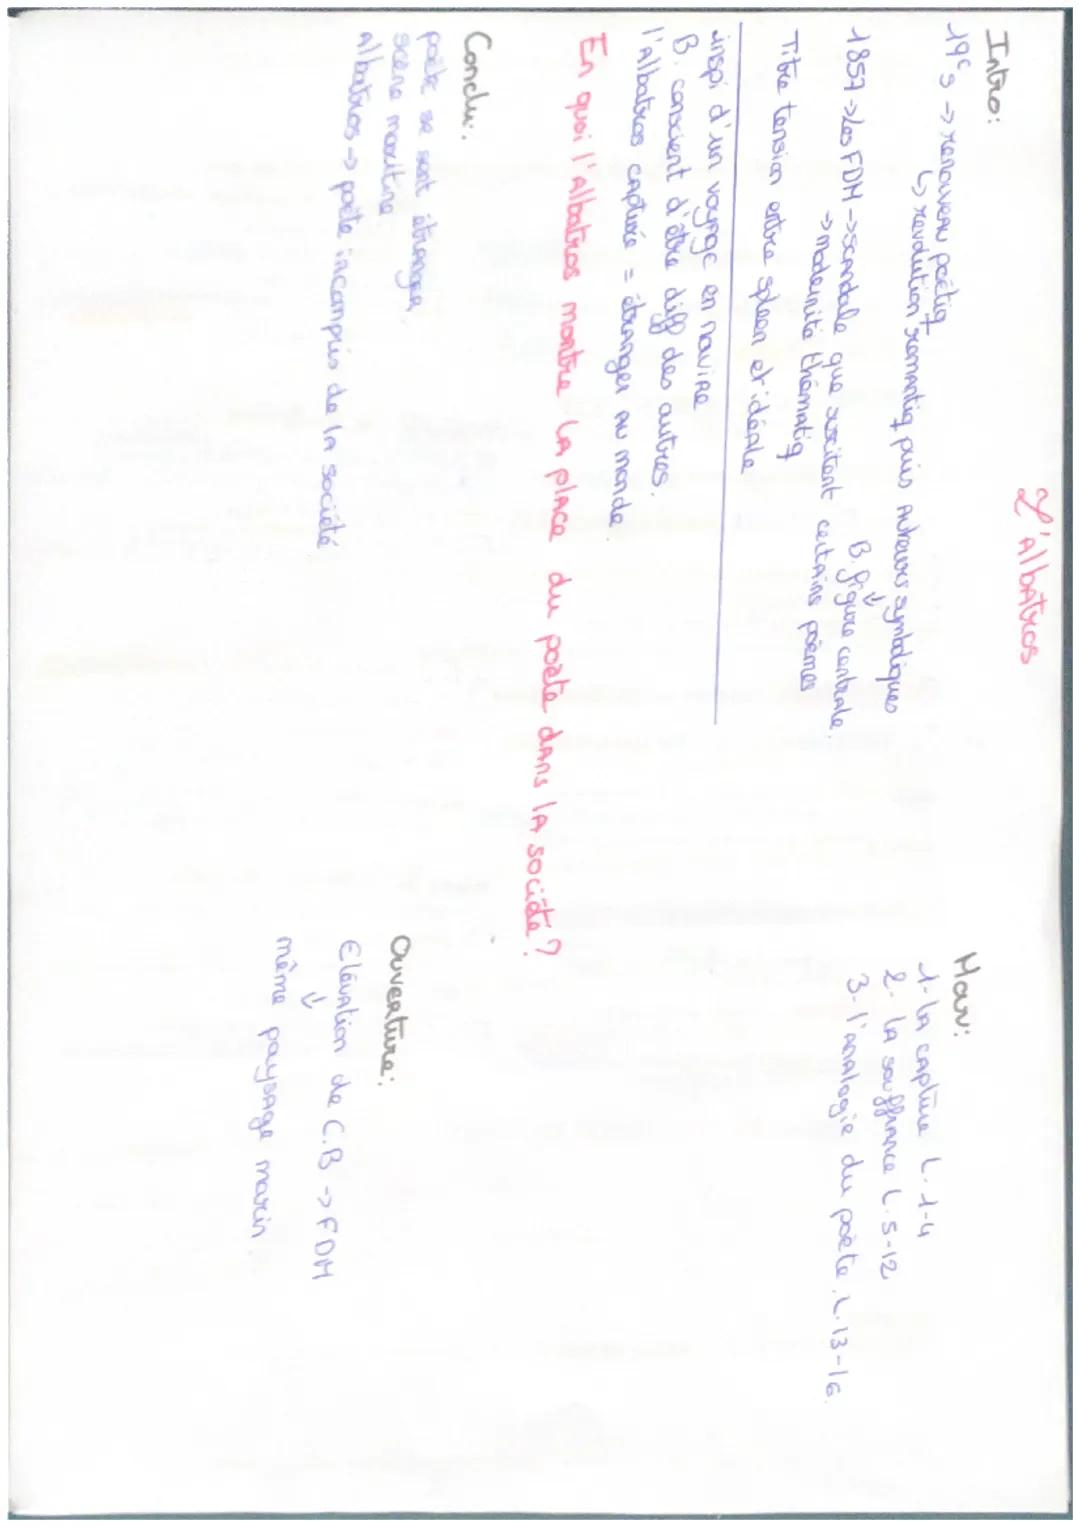 L'albatros
Intro:
19e s -> renouveau poétiq
↳ revolution romantiq puis auteurs symboliques
↓
B. figure centrale.
1857 -> Les FDM -> scandale que suscitent certains poèmes
-> modernité thématiq
Titre tension entre spleen et idéale
inspi d'un voyage en navire
B. conscient d'être diff des autres.
l'Albatros capturé = étranger au monde
En quoi l'Albatros montre la place du poète dans la société?
Conclu:
poète se sent étranger.
scène maritime
albatros -> poète incompris de la société
Mouv:
1- la capture L.1-4
2- la souffrance L.5-12
3- l'analogie du poète L.13-16.
Ouverture:
Elévation de C.B -> FDM
↓
même paysage marin